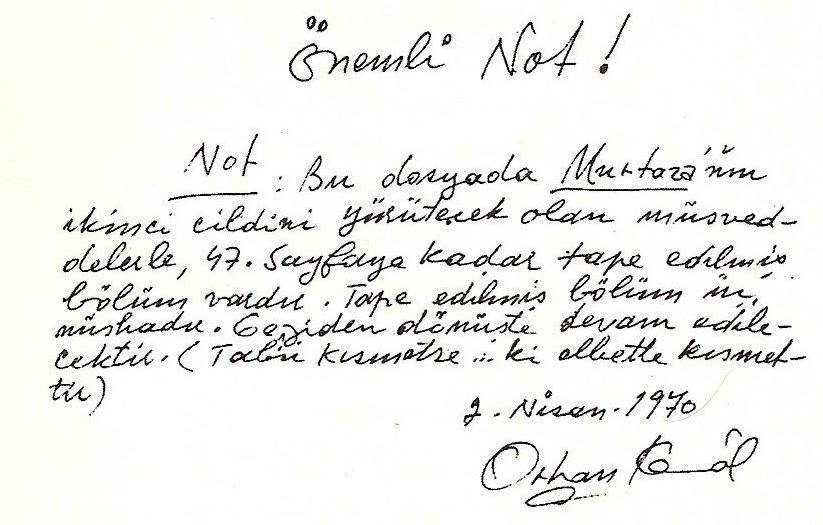 Önemli Not!
Not : Bu dosyada Murtaza'nın
ikinci cildini yürütecek olan müsved-
delerle, 47. sayfaya kadar tape edilmiş
bölüm vardır. Tape edilmiş bölüm üç
nüshadır. Geziden dönüşte devam edile-
cektir. (Tabii kısmetse... ki elbette kısmet-
tir)
2. Nisan. 1970
Orhan Kemâl